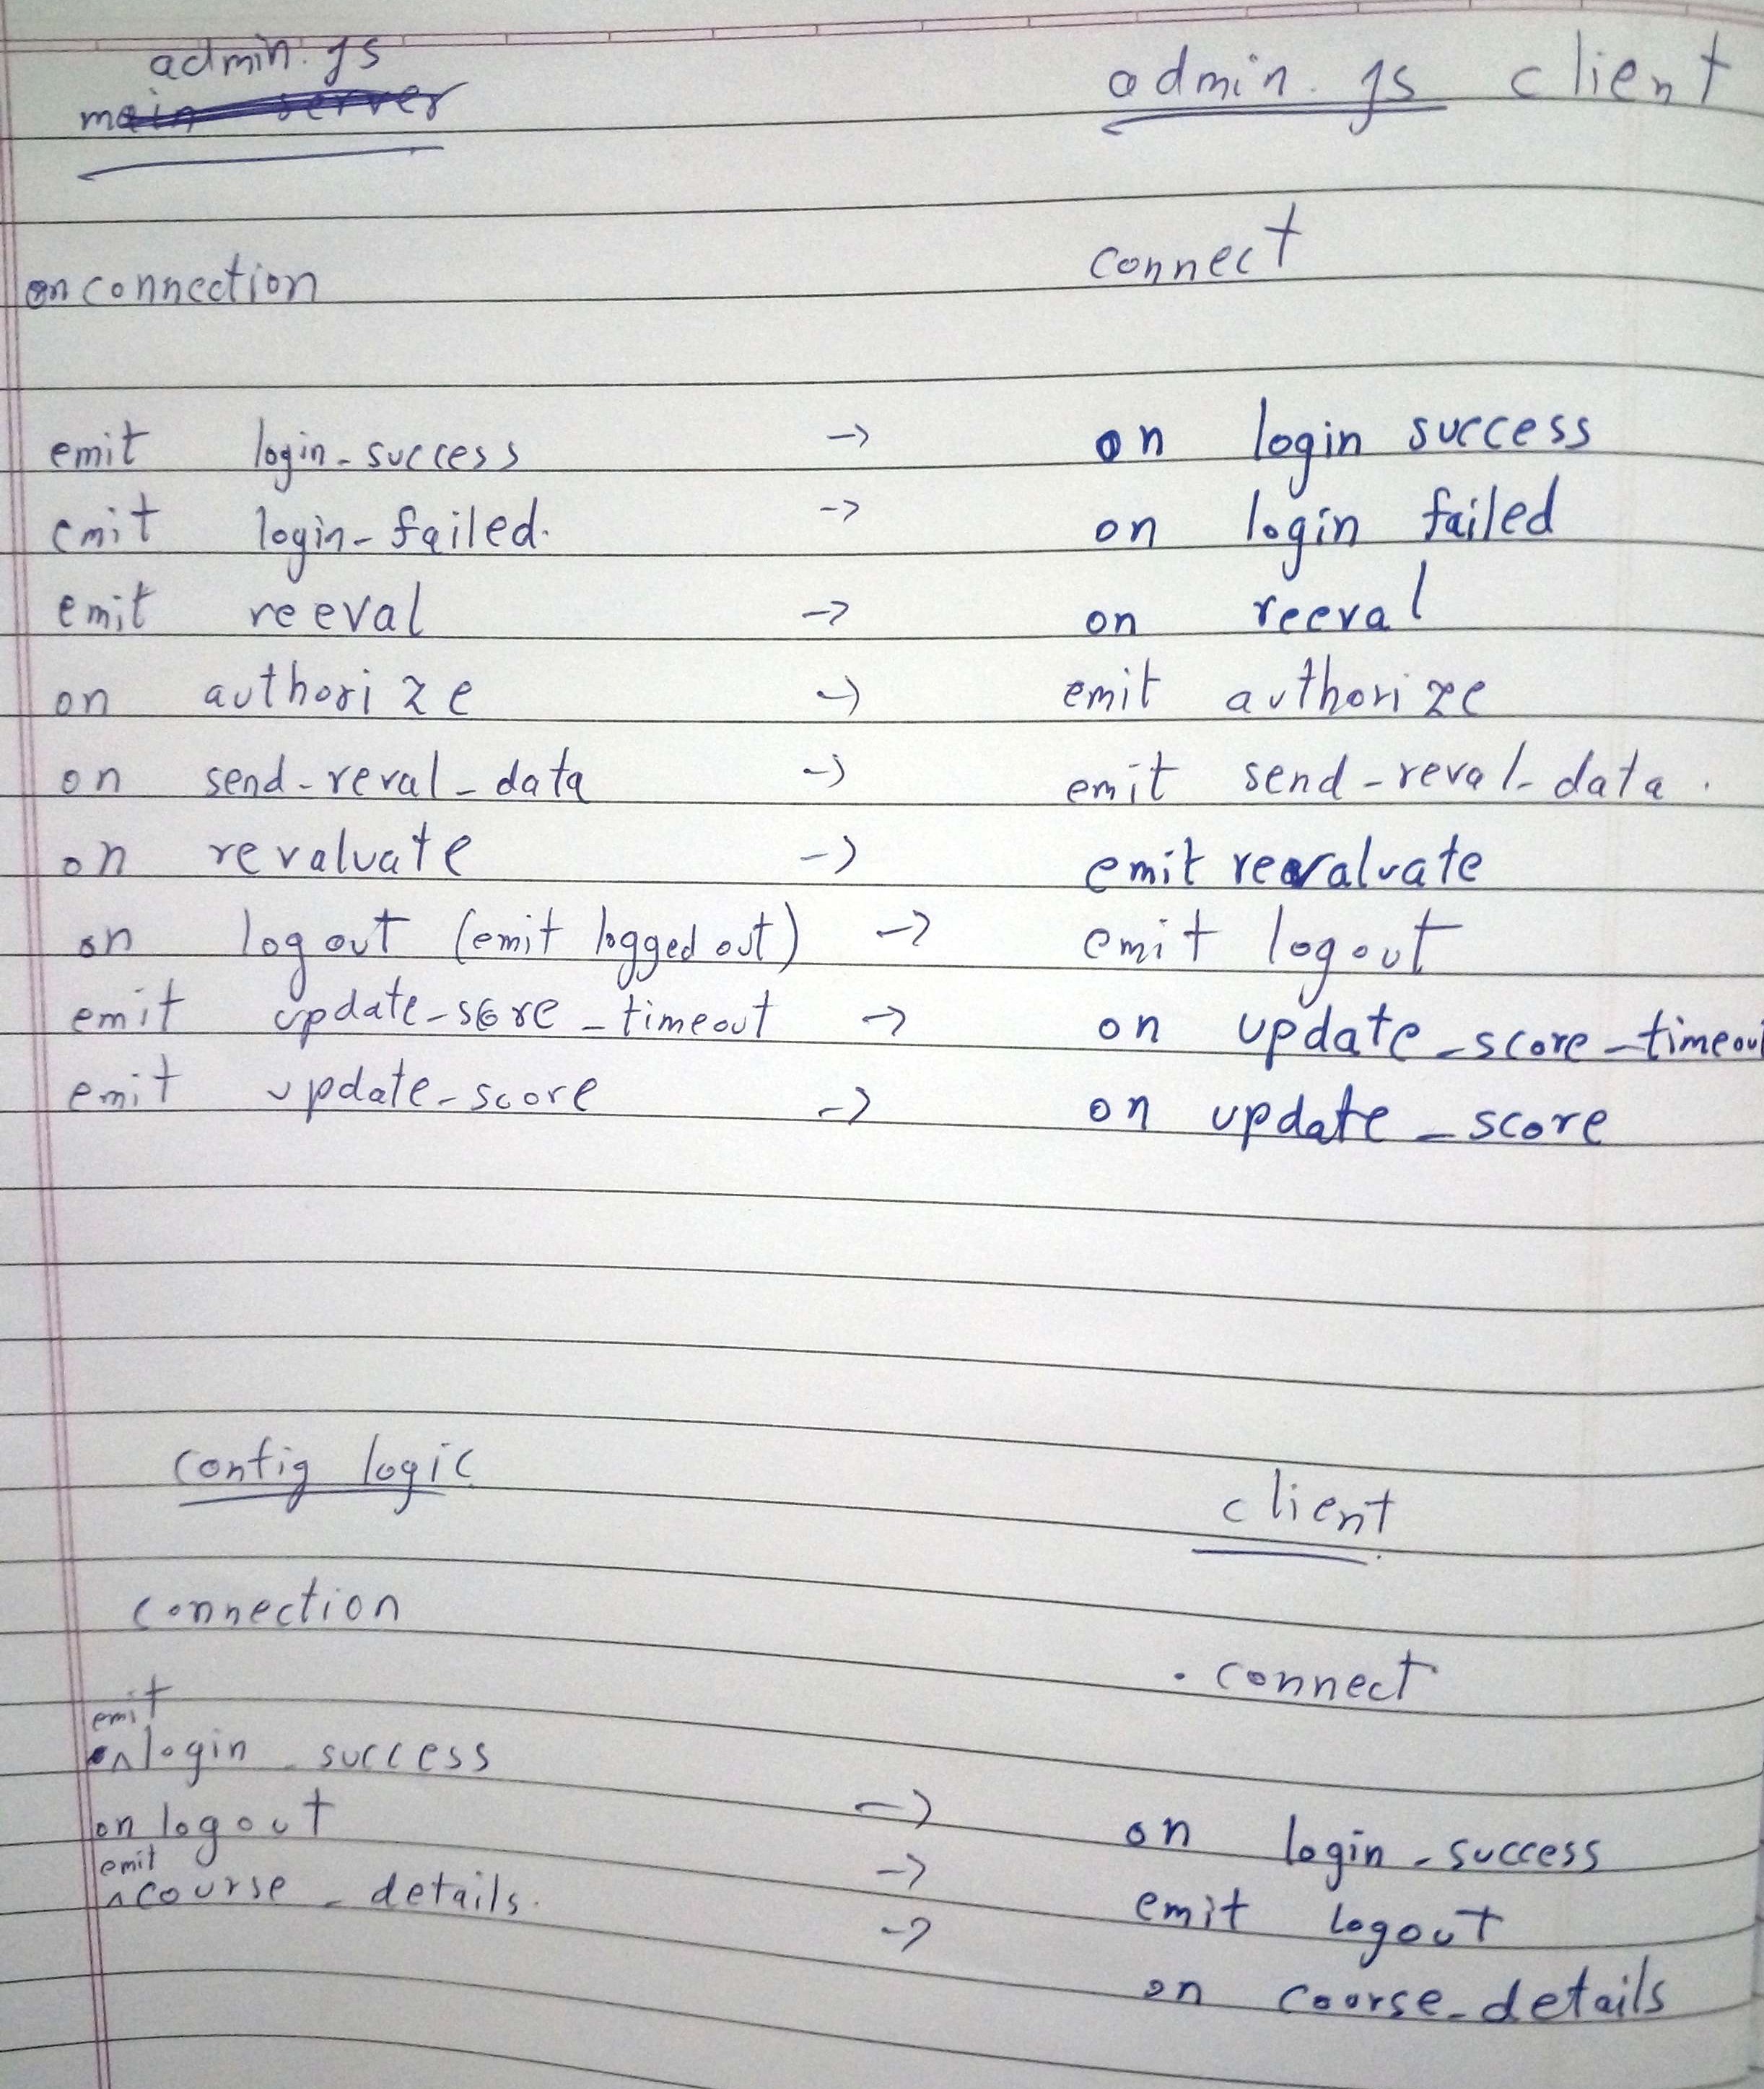 admin.js
admin.js client
on connection
connect
emit login_success -> on login success
emit login_failed. -> on login failed
emit reeval -> on reeval
on authorize -> emit authorize
on send_reval_data -> emit send_reval_data.
on revaluate -> emit revaluate
on logout (emit logged out) -> emit logout
emit update_score_timeout -> on update_score_timeout
emit update_score -> on update_score
config logic
client
connection
. connect
emit
login_success -> on login_success
on logout -> emit logout
emit
course_details. -> on course_details